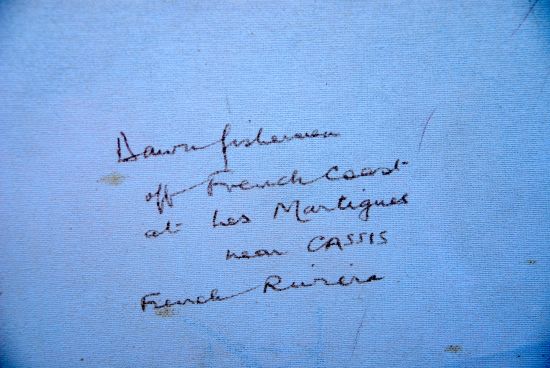 Dawn fishermen
off French Coast
at Les Martigues
near CASSIS
French Riviera